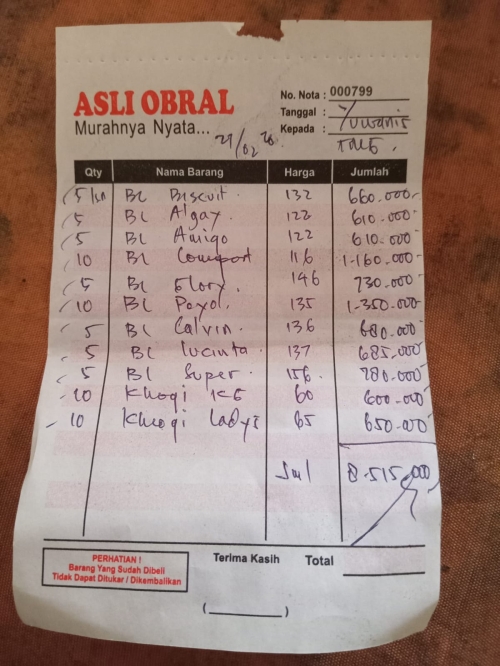 ASLI OBRAL
Murahnya Nyata...
No. Nota : 000799
Tanggal :
Kepada :
27/02
Qty Nama Barang Harga Jumlah
5 BL Biscuit. 132 660.000
5 BL Algay. 122 610.000
5 BL Amigo 122 610.000
10 BL 116 1.160.000
5 BL Flory. 146 730.000
10 BL 135 1.350.000
5 BL Calvin. 136 680.000
5 BL lucinta. 137 685.000
5 BL Super. 156. 780.000
10 60 600.000
10 65 650.000
Jml 8.515.000
PERHATIAN !
Barang Yang Sudah Dibeli
Tidak Dapat Ditukar / Dikembalikan
Terima Kasih Total
(__________)